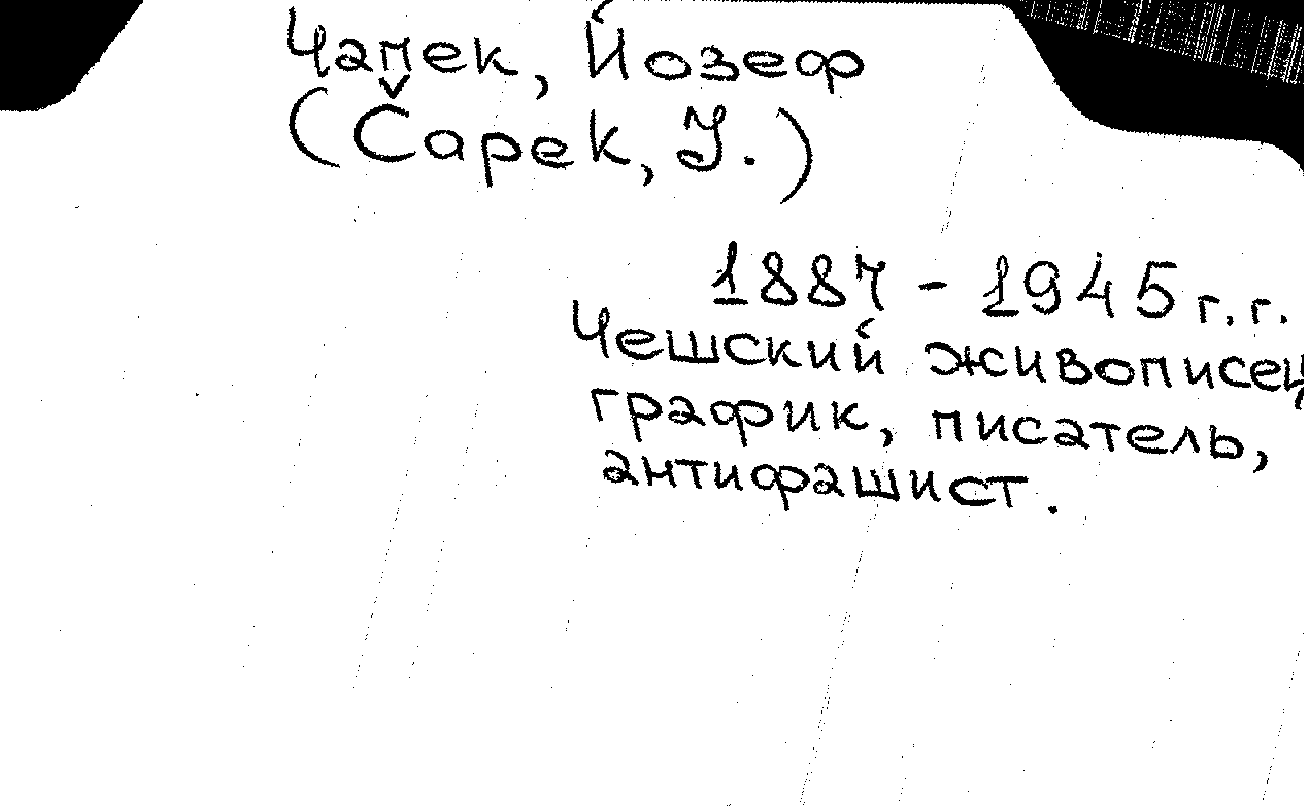 Чапек, Йозеф
(Čapek, J.)
1887 - 1945 г.г.
Чешский живописец
график, писатель,
антифашист.